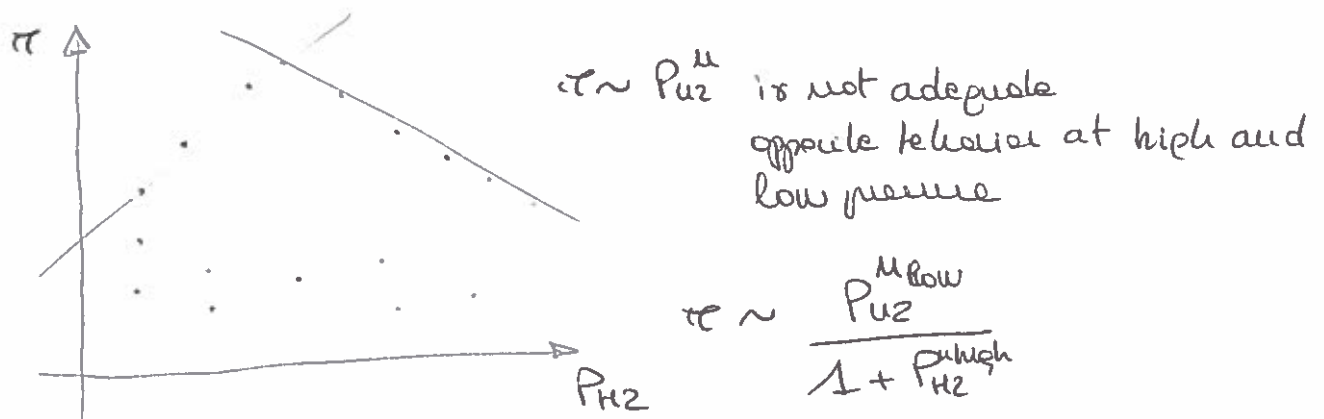 π
π ~ P_H2^n is not adequate
opposite behavior at high and
low pressure
π ~ P_H2^n low / 1 + P_H2^n high
P_H2